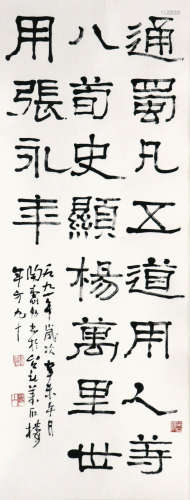 通蜀凡五道用人等
八荀史顯楊萬里世
用張永年
一九九一年歲次辛未年月
陶壽伯書於台北萬石樓
年方九十